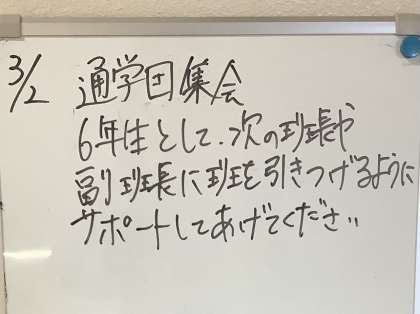 3/2 通学団集会
6年生として、次の班長や
副班長に班を引きつげるように
サポートしてあげてください